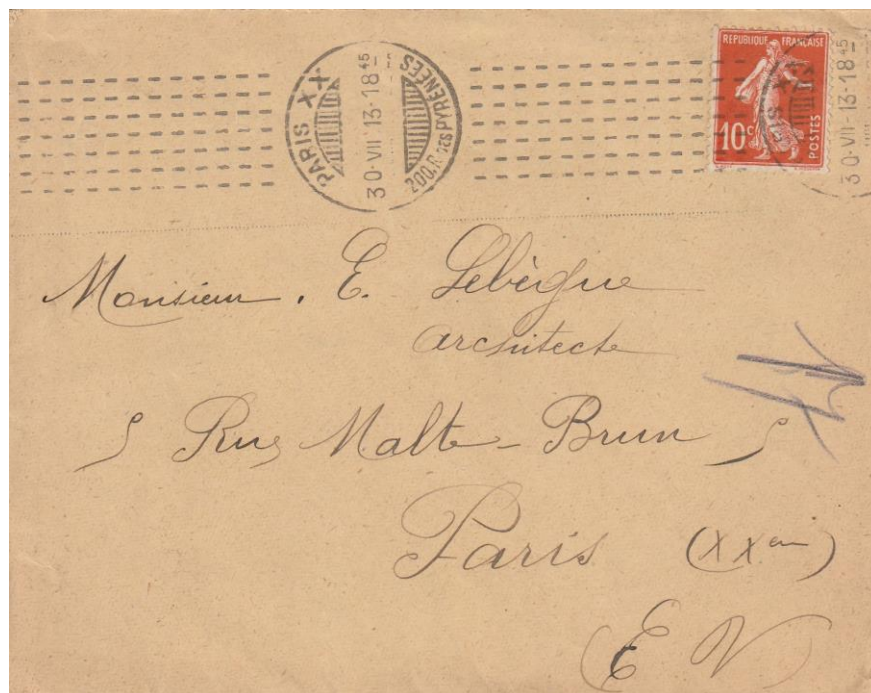 PARIS XX
30·VII 13·18 45
200.R. DES PYRENEES
REPUBLIQUE FRANÇAISE
10c
POSTES
30·VII 13·18 45
Monsieur. E. Lebègue
architecte
5 Rue Malte-Brun 5
Paris (XXem)
E V